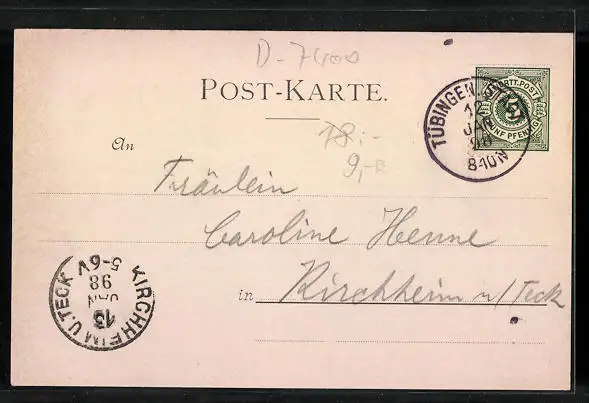 D-7400
POST-KARTE.
WÜRTT. POST
5
FÜNF PFENNIG
TÜBINGEN
12
JAN
98
8-10N
18.-
9,-
An
Fräulein
Caroline Henne
in Kirchheim u/Teck
KIRCHHEIM U. TECK
13
JAN
98
5-6V